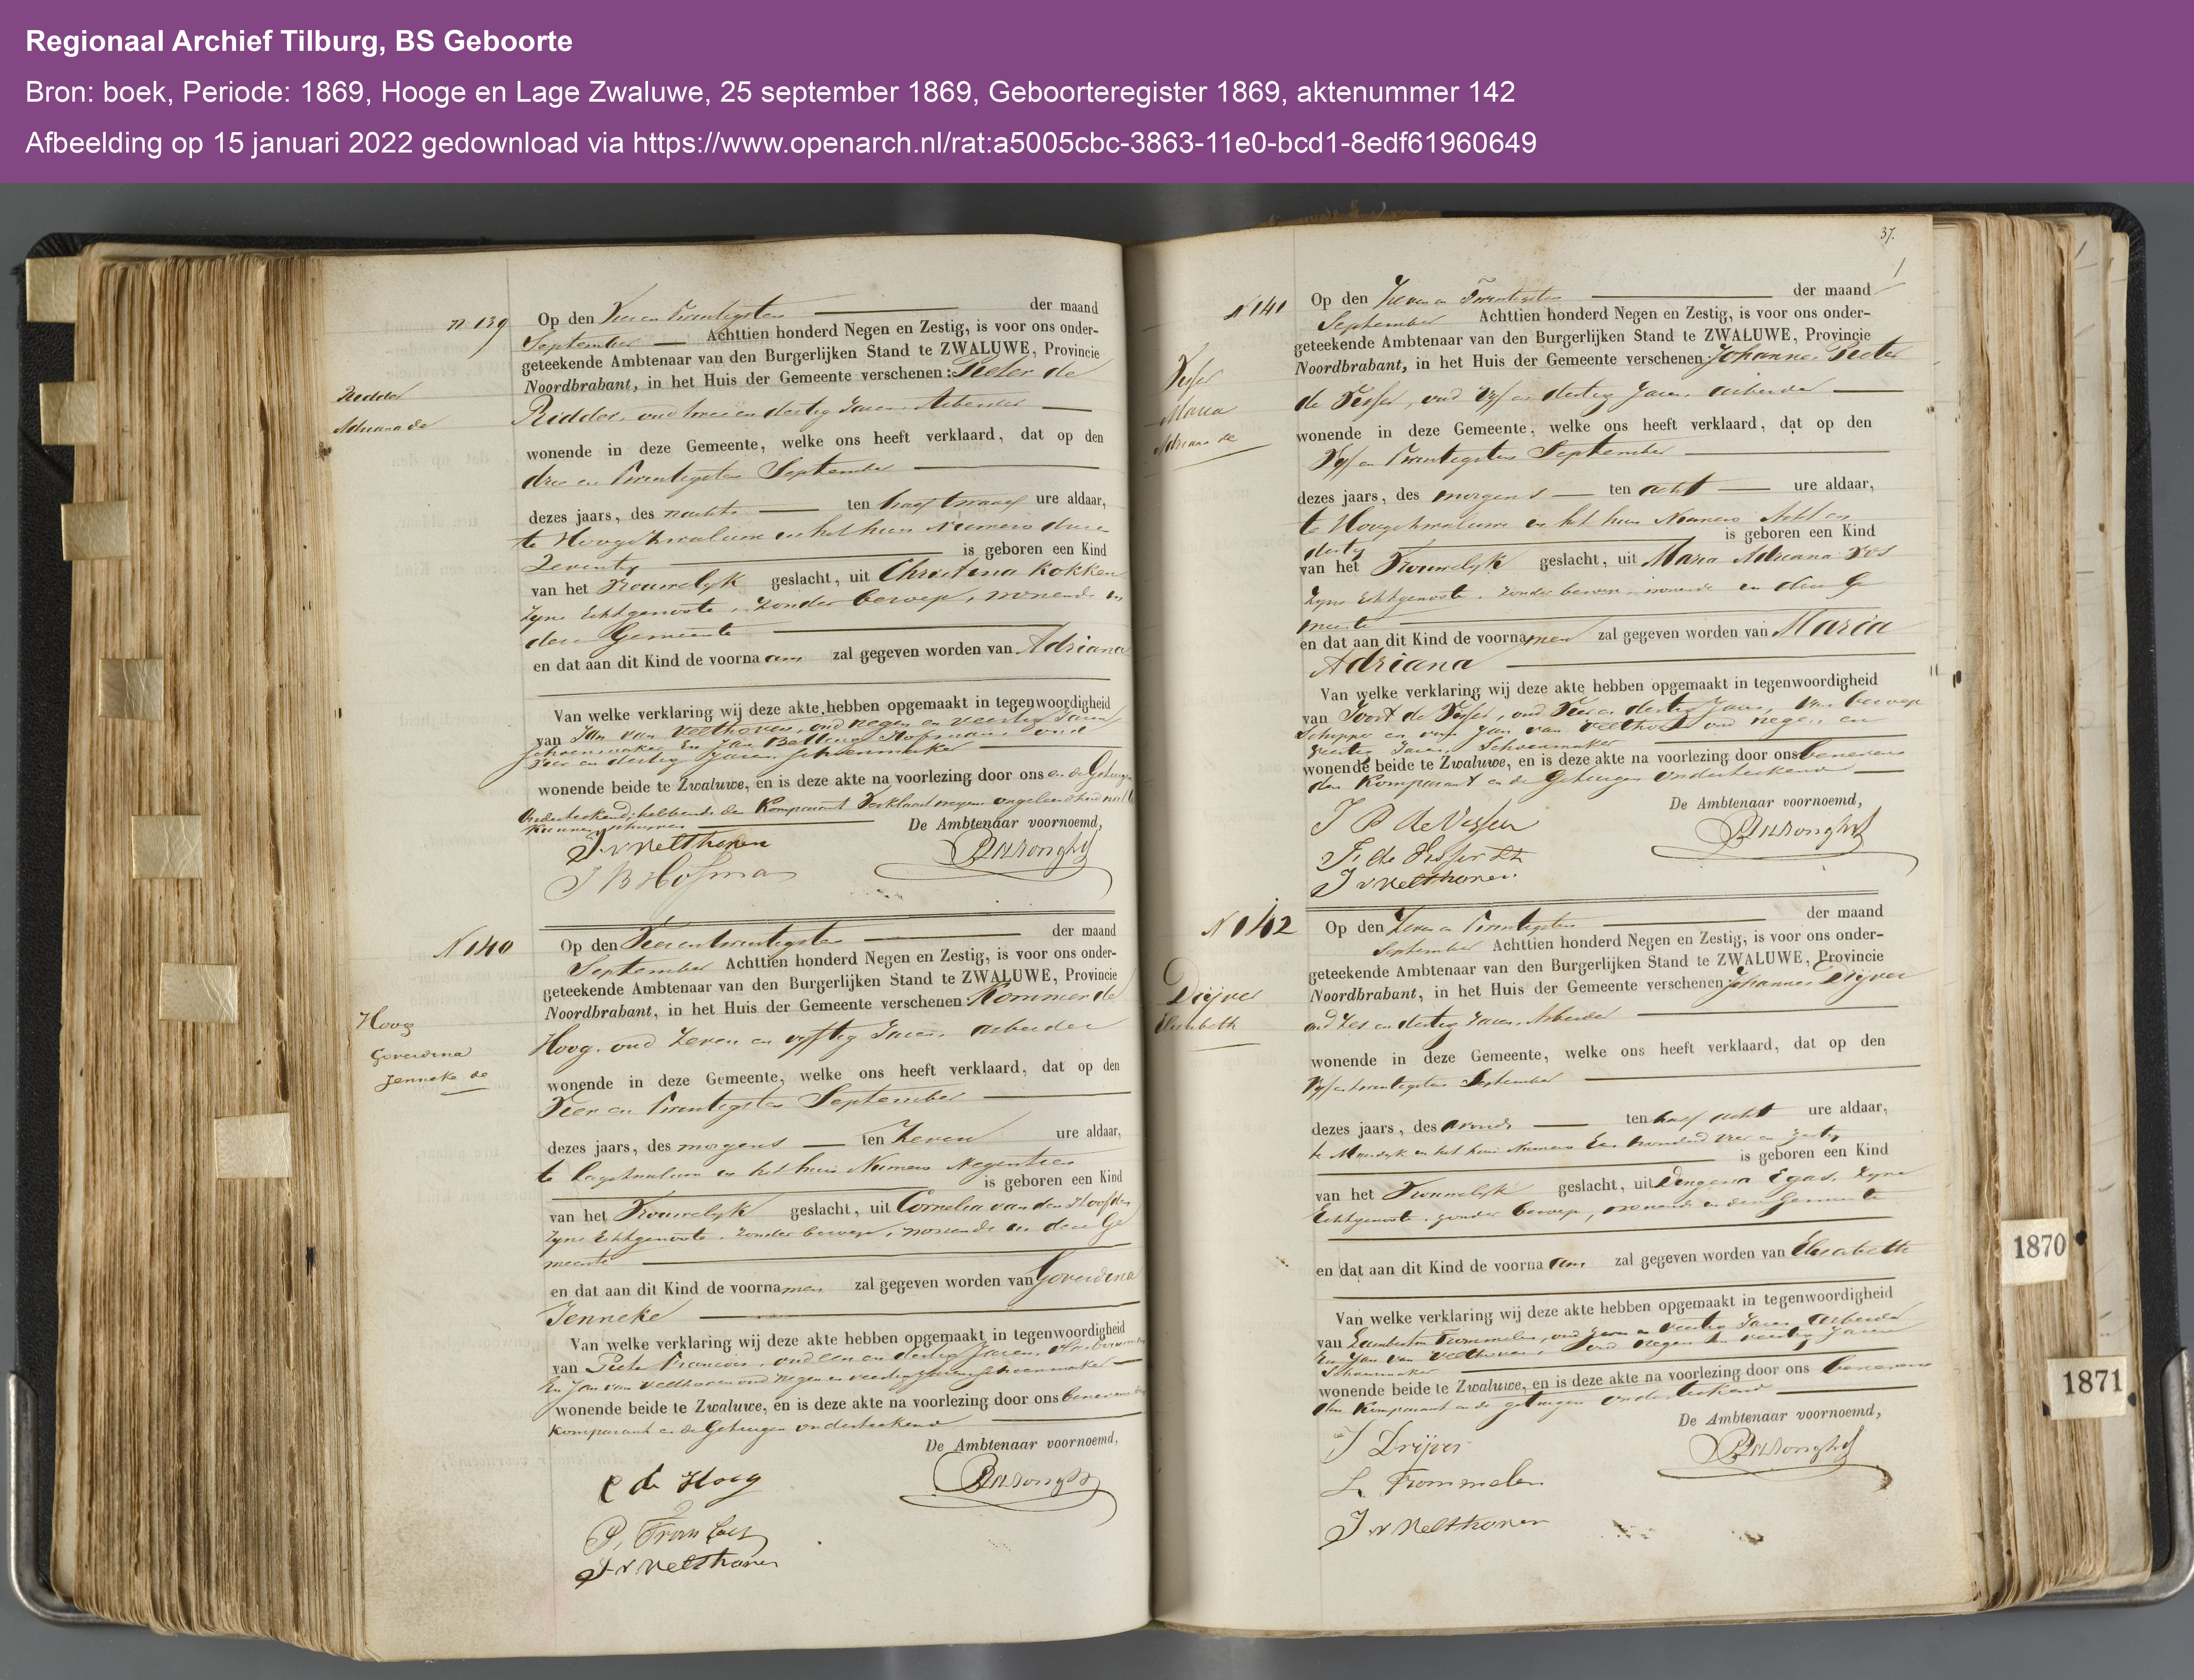 Regionaal Archief Tilburg, BS Geboorte
Bron: boek, Periode: 1869, Hooge en Lage Zwaluwe, 25 september 1869, Geboorteregister 1869, aktenummer 142
Afbeelding op 15 januari 2022 gedownload via https://www.openarch.nl/rat:a5005cbc-3863-11e0-bcd1-8edf61960649
N 139
Ridder
Adriana de
Op den Vier en Twintigsten der maand
September Achttien honderd Negen en Zestig, is voor ons onder-
geteekende Ambtenaar van den Burgerlijken Stand te ZWALUWE, Provincie
Noordbrabant, in het Huis der Gemeente verschenen: Pieter de
Ridder, oud twee en dertig Jaren, Arbeider
wonende in deze Gemeente, welke ons heeft verklaard, dat op den
drie en Twintigsten September
dezes jaars, des nachts ten half twaalf ure aldaar,
te Hoogezwaluwe in het huis Numero drie en
Zeventig is geboren een Kind
van het Vrouwelyk geslacht, uit Christina Kokken
zyne Echtgenoote, zonder beroep, wonende in
deze Gemeente
en dat aan dit Kind de voornaam zal gegeven worden van Adriana
Van welke verklaring wij deze akte hebben opgemaakt in tegenwoordigheid
van Jan van Velthoven, oud negen en veertig Jaren
Schoenmaker En Jan Hofman, oud
en dertig Jaren, Schoenmaker
wonende beide te Zwaluwe, en is deze akte na voorlezing door ons en de Getuigen
Onderteekend, hebbende de Komparant Verklaard wegens ongeleerdheid niet te
kunnen schryven
De Ambtenaar voornoemd,
J v Velthoven
J B Hofman
N 140
Hoog
Goverdina
Jenneke de
Op den Vier en twintigsten der maand
September Achttien honderd Negen en Zestig, is voor ons onder-
geteekende Ambtenaar van den Burgerlijken Stand te ZWALUWE, Provincie
Noordbrabant, in het Huis der Gemeente verschenen: Kommer de
Hoog, oud Zeven en vyftig Jaren, arbeider
wonende in deze Gemeente, welke ons heeft verklaard, dat op den
Vier en Twintigsten September
dezes jaars, des morgens ten Zeven ure aldaar,
te Lagezwaluwe in het huis Numero Negentien
is geboren een Kind
van het Vrouwelyk geslacht, uit Cornelia van den Hoofden
zyne Echtgenoote, zonder beroep, wonende in deze Ge
meente
en dat aan dit Kind de voornamen zal gegeven worden van Goverdina
Jenneke
Van welke verklaring wij deze akte hebben opgemaakt in tegenwoordigheid
van Pieter Francois, oud een en dertig Jaren,
En Jan van Velthoven oud negen en veertig Jaren Schoenmaker
wonende beide te Zwaluwe, en is deze akte na voorlezing door ons benevens den
Komparant en de Getuigen onderteekend
De Ambtenaar voornoemd,
C de Hoog
P. Francois
J v Velthoven
37.
N 141
Visser
Maria
Adriana de
Op den Zeven en Twintigsten der maand
September Achttien honderd Negen en Zestig, is voor ons onder-
geteekende Ambtenaar van den Burgerlijken Stand te ZWALUWE, Provincie
Noordbrabant, in het Huis der Gemeente verschenen: Johannes Pieter
de Visser, oud Vyf en dertig Jaren, arbeider
wonende in deze Gemeente, welke ons heeft verklaard, dat op den
Vyf en Twintigsten September
dezes jaars, des morgens ten acht ure aldaar,
te Hoogezwaluwe in het huis Numero Acht en
dertig is geboren een Kind
van het Vrouwelyk geslacht, uit Maria Adriana Vos
zyne Echtgenoote, zonder beroep, wonende in deze Ge
meente
en dat aan dit Kind de voornamen zal gegeven worden van Maria
Adriana
Van welke verklaring wij deze akte hebben opgemaakt in tegenwoordigheid
van de Visser, oud Vier en dertig Jaren, van beroep
Schipper en van Jan van Velthoven oud negen en
veertig Jaren, Schoenmaker
wonende beide te Zwaluwe, en is deze akte na voorlezing door ons benevens
den Komparant en de Getuigen Onderteekend
De Ambtenaar voornoemd,
J P de Visser
de Visser
J v Velthoven
N 142
Drijver
Elisabeth
Op den Zeven en Twintigsten der maand
September Achttien honderd Negen en Zestig, is voor ons onder-
geteekende Ambtenaar van den Burgerlijken Stand te ZWALUWE, Provincie
Noordbrabant, in het Huis der Gemeente verschenen: Johannes Drijver
oud Zes en dertig Jaren, Arbeider
wonende in deze Gemeente, welke ons heeft verklaard, dat op den
Vyf en twintigsten September
dezes jaars, des avonds ten half acht ure aldaar,
te Moerdyk in het huis Numero Een honderd vier en zestig
is geboren een Kind
van het Vrouwelyk geslacht, uit Dingena Egas, zyne
Echtgenoote, zonder beroep, wonende in deze Gemeente
en dat aan dit Kind de voornaam zal gegeven worden van Elisabeth
Van welke verklaring wij deze akte hebben opgemaakt in tegenwoordigheid
van Lambertus Trommelen, oud en veertig Jaren, arbeider
En Jan van Velthoven, oud negen en veertig Jaren
Schoenmaker
wonende beide te Zwaluwe, en is deze akte na voorlezing door ons benevens
den Komparant en de getuigen onderteekend
De Ambtenaar voornoemd,
J Drijver
L. Trommelen
J v Velthoven
1870
1871